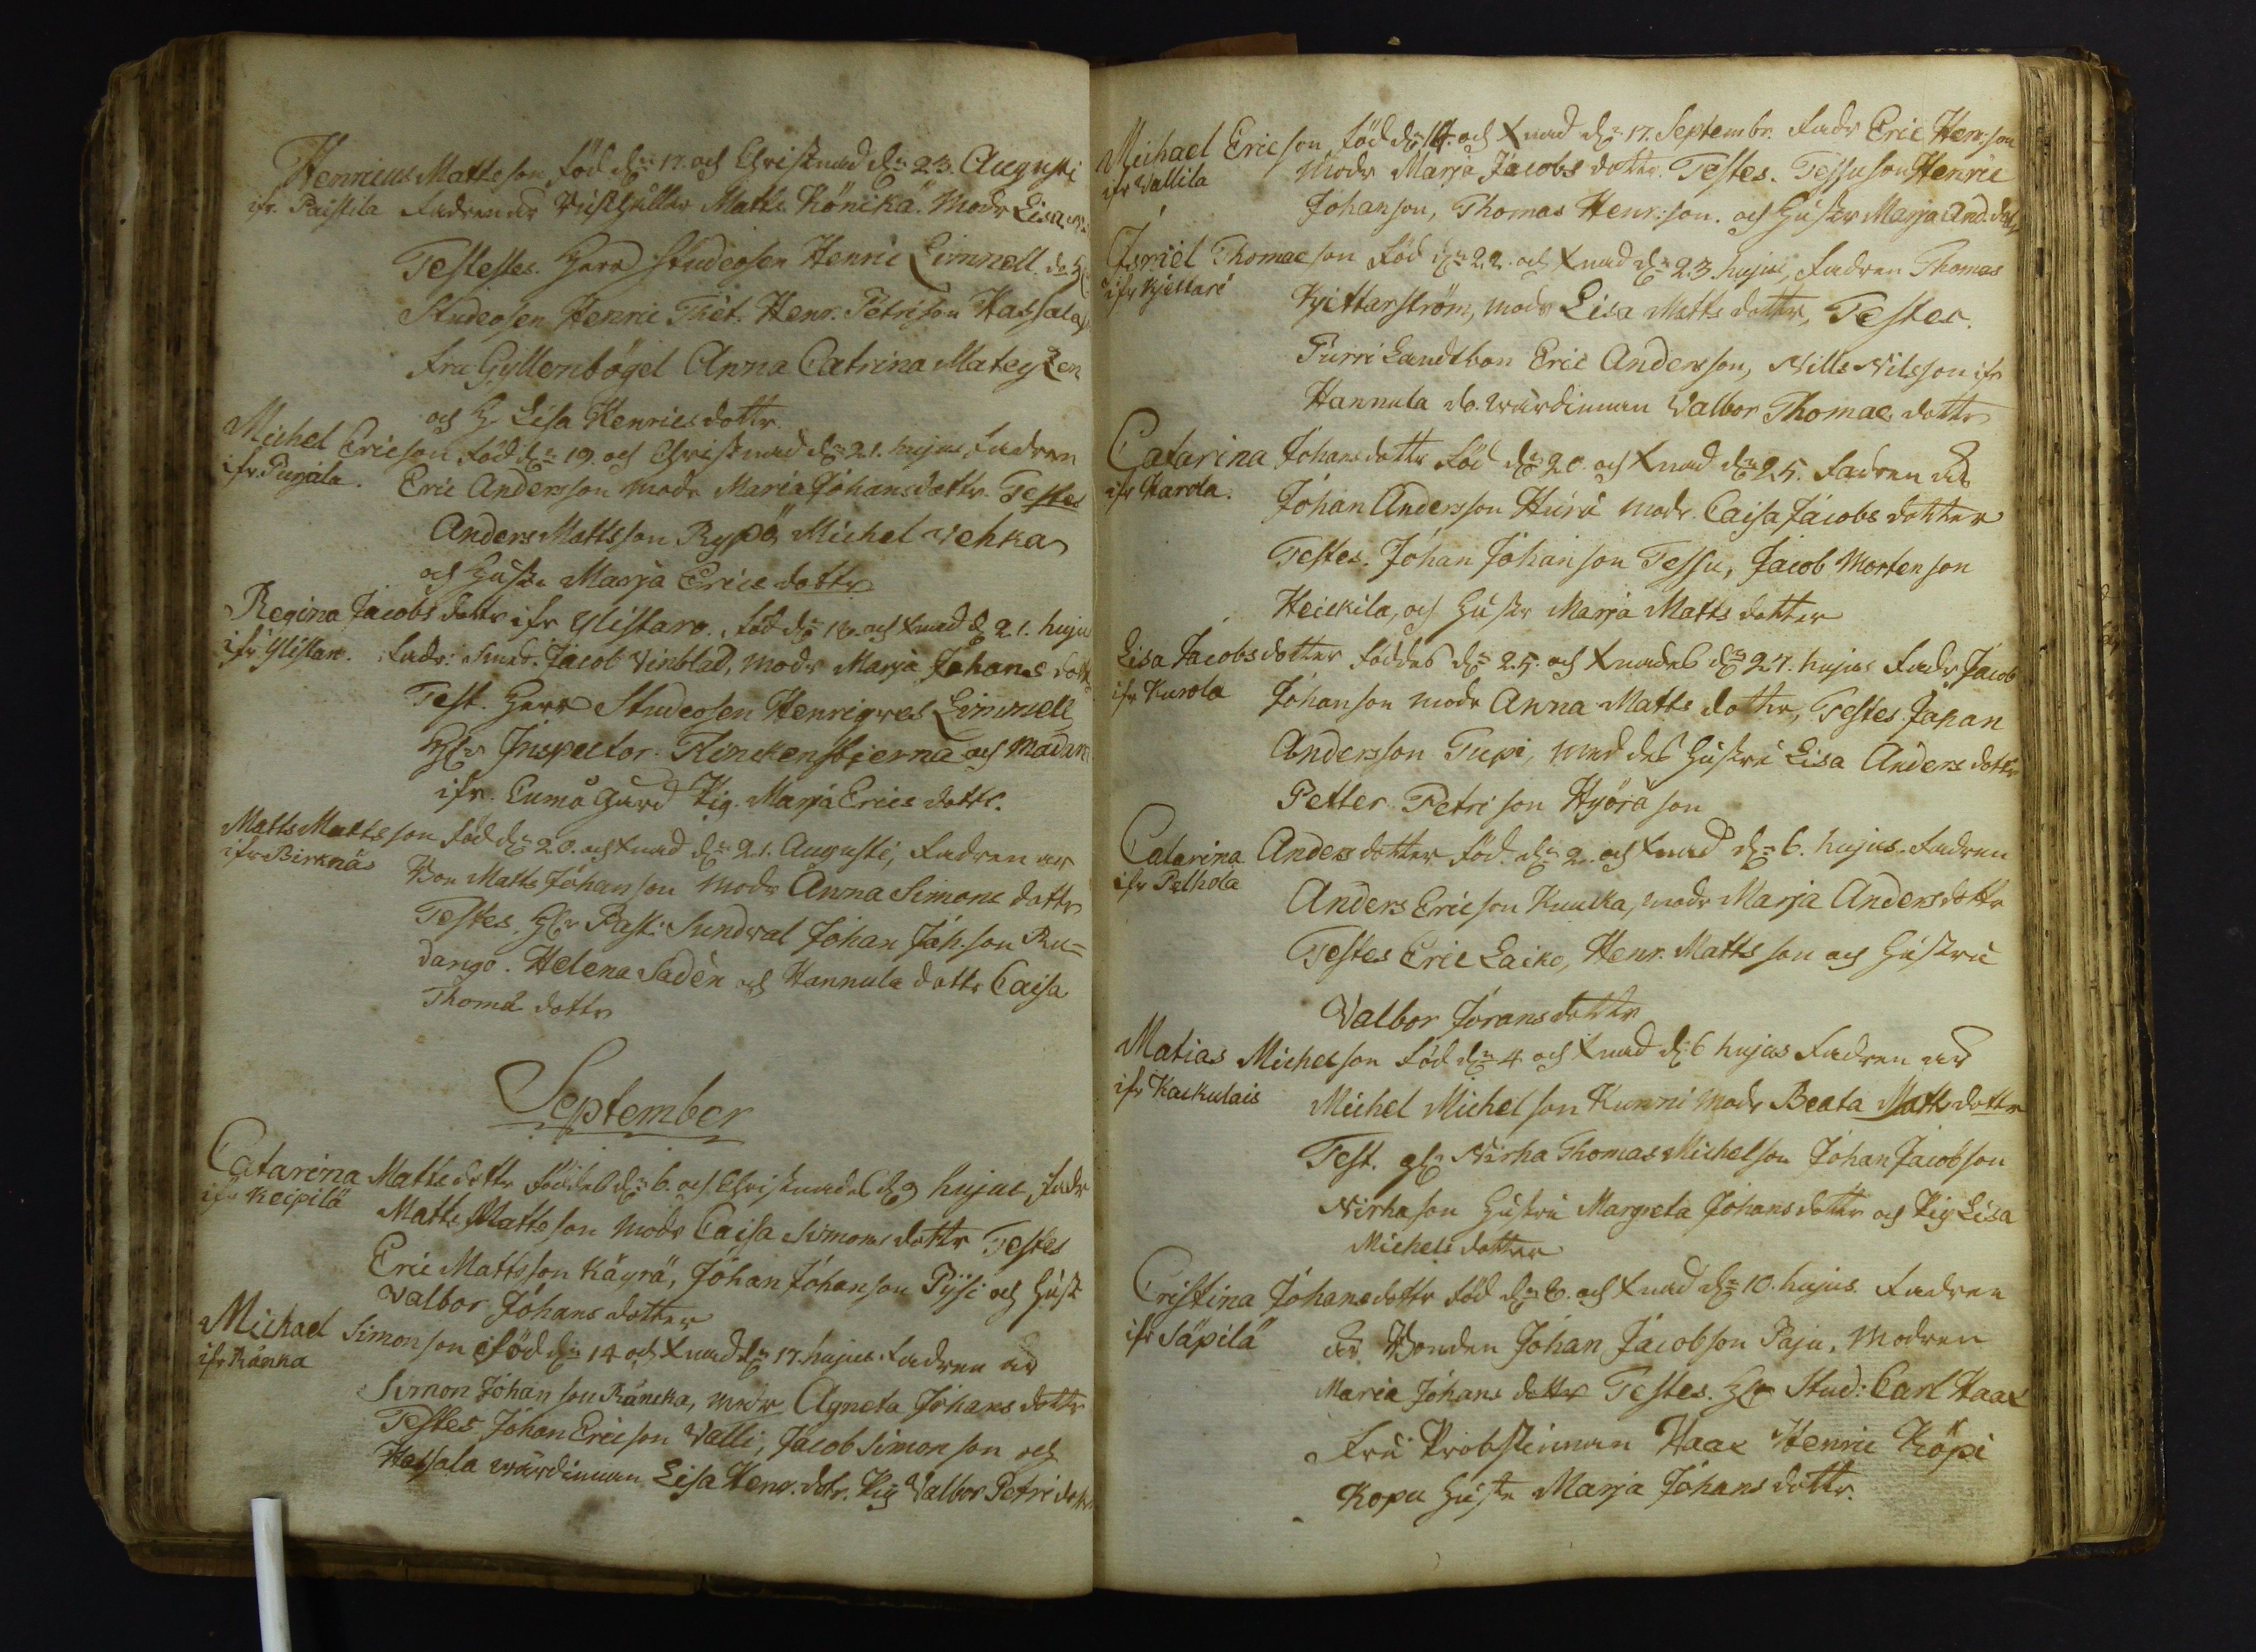 Henricus Mattsson föd dn 17. och Christnad dn 23. Augusti
ifr. Paistila fadren är Giästgifver Matts Könikä. Modr Lisa
Testestes. Herr Studeosen Henric Limnell. do
Studeosen Henric Thet. Henr. Petrison Hassala
fru Gyllenbögel Anna Catrina Mateyzen
och H. Lisa Henricsdottr.
Michel Ericson född dn 19. och Christnad dn 21. hujus fadren
ifr. Punola. Eric Andersson modr Maria Johansdottr. Testes
Anders Mattsson Rypö, Michel Vehka
och Hustr. Marja Erics dottr
Regina Jacobs dottr ifr Ylistaro. föd dn 18. och Xnad d 21. huju
ifr Ylistaro. fadr: Smed. Jacob Vinblad, modr Marja Johans dottr
Test. Herr Studeosen Henriques Limnell
Hr Inspector Flinckenstjerna och Madam
ifr. Lumä gård Pig. Marja Erics dottr.
Matts Mattsson föd dn 20. och Xnad dn 21. Augusti, fadren är
ifr Birknäs Bon Matts Johanson modr Anna Simons dottr
Testes. Hr Past: Sundval Johan Joh.son Ru=
dango. Helena Sadén och Hannula dottr Caisa
Thomæ dottr
September
Catarina Mattsdottr föddes dn 6. och Christnades d 9 hujus, fadr
ifr Keipilä Matts Mattsson modr Caisa Simonsdottr Testes
Eric Mattsson Käyrä, Johan Johanson Pijsi och Hust
Valbor Johans dotter
Michael Simonson föd dn 14 och Xnad dn 17. hujus fadren är
ifr Ränka Simon Johanson Räncka, modr Agneta Johans dottr
Testes Johan Ericson Valli, Jacob Simonson och
Hassala wärdinnan Lisa Henr. dotr. Pig Valbor Petri dottr
Michael Ericson, föd dn 14. och Xnad dn 17. Septembr. fadr Eric Henr:son
ifr Vallila Modr Marja Jacobs dotter. Testes. Tessuson Henric
Johanson, Thomas Henr:son. och Hustr Marja And. dottr
Isriel Thomæson föd dn 22. och Xnad dn 23. hujus, fadren Thomas
ifr Kjettare Kjettarström, modr Lisa Matts dottr, Testes.
Purri Landtbon Eric Andersson, Nills Nilsson ifr
Hannula do. wärdinnan Valbor Thomae dottr
Catarina Johansdottr föd dn 20. och Xnad dn 25. fadren är
ifr Karola. Johan Andersson Huru modr. Caisa Jacobs dotter
Testes. Johan Johanson Tessu, Jacob Mortenson
Heickila, och Hustr Marja Matts dotter
Lisa Jacobsdotter föddes dn 25. och Xnades dn 27. hujus fadr Jacob
ifr Kurola Johanson modr Anna Matts dotter, Testes. Johan
Andersson Tupi, med des Hustru Lisa Anders dottr
Petter Petrison Hyöräson
Catarina Anders dotter föd. dn 2. och Xnad dn 6. hujus. fadren
ifr Pelhola Anders Ericson Kuucka, modr Marja Andersdottr
Testes Eric Laiko, Henr. Mattsson och Hustru
Valbor Jöransdottr
Matias Michelson föd dn 4 och Xnad d: 6 hujus fadren är
ifr Kackulais Michel Michelson Kunni modr Beata Matts dottr
Test. gl. Nirha Thomas Michelson Johan Jacobson
Nirhason Hustru Margreta Johansdotter och Pig Lisa
Michels dotter
Cristina Johansdottr föd dn 8. och Xnad dn 10. hujus. fadren
ifr Säpilä är Bonden Johan Jacobson Paju, Modren
Maria Johans dotter Testes. Hr Stud: Carl Haax
Fru Probstinnan Haax Henric Köpi
Kopu Hustr Marja Johans dottr.